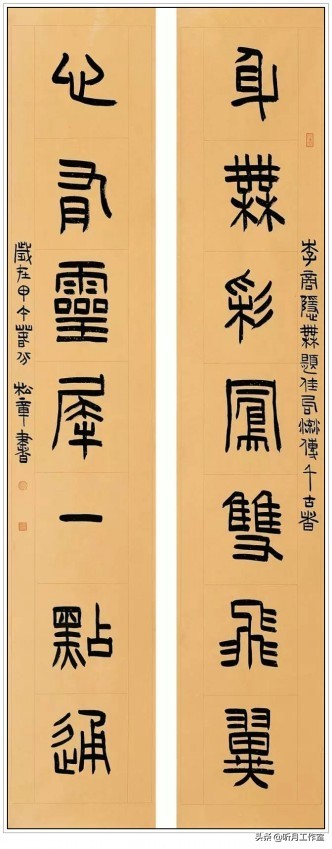 李商隱無題佳句傳千古者
身無彩鳳雙飛翼
心有靈犀一點通
歲在甲午春分 松章書
头条@听月工作室